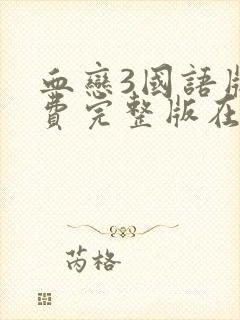 血戀3國語版
費完整版在
芮格